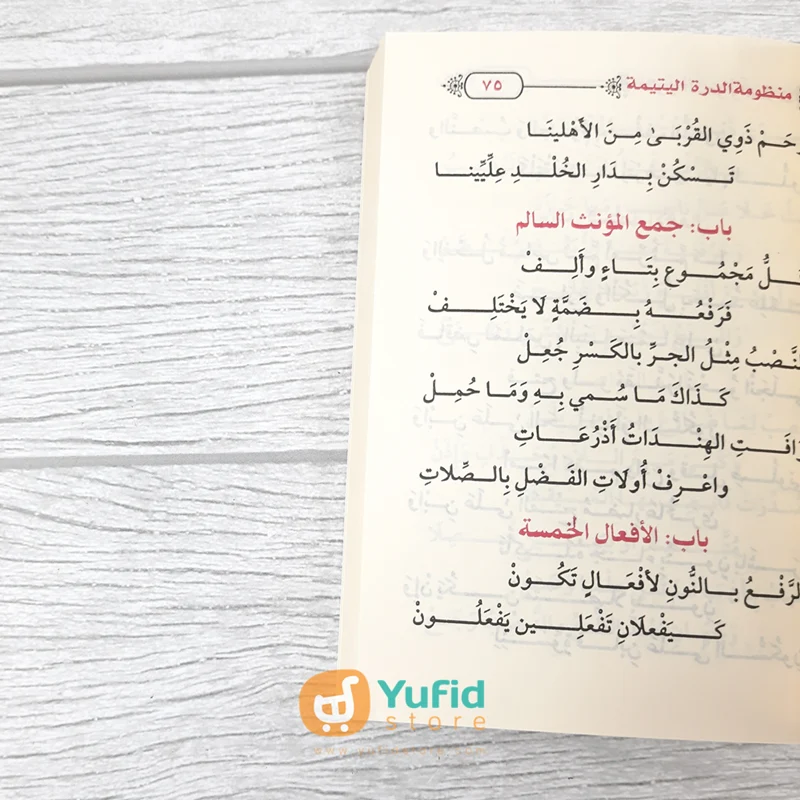 منظومة الدرة اليتيمة
٧٥
ذَوِي القُرْبَىٰ مِنَ الأَهْلِينَا
تَسْكُنْ بِدَارِ الخُلْدِ عِلِّيِّينا
باب: جمع المؤنث السالم
مَجْمُوعٍ بِتَاءٍ وأَلِفْ
فَرَفْعُهُ بِضَمَّةٍ لَا يَخْتَلِفْ
مِثْلُ الجرِّ بالكَسْرِ جُعِلْ
كَذَاكَ مَا سُمي بِهِ وَمَا حُمِلْ
الهِنْدَاتُ أَذْرُعَاتِ
واعْرِفْ أُولَاتِ الفَضْلِ بِالصِّلاتِ
باب: الأفعال الخمسة
بالنُّونِ لأفْعَالٍ تَكُونْ
كَيَفْعلانِ تَفْعَلِين يَفْعَلُونْ
Yufid
store